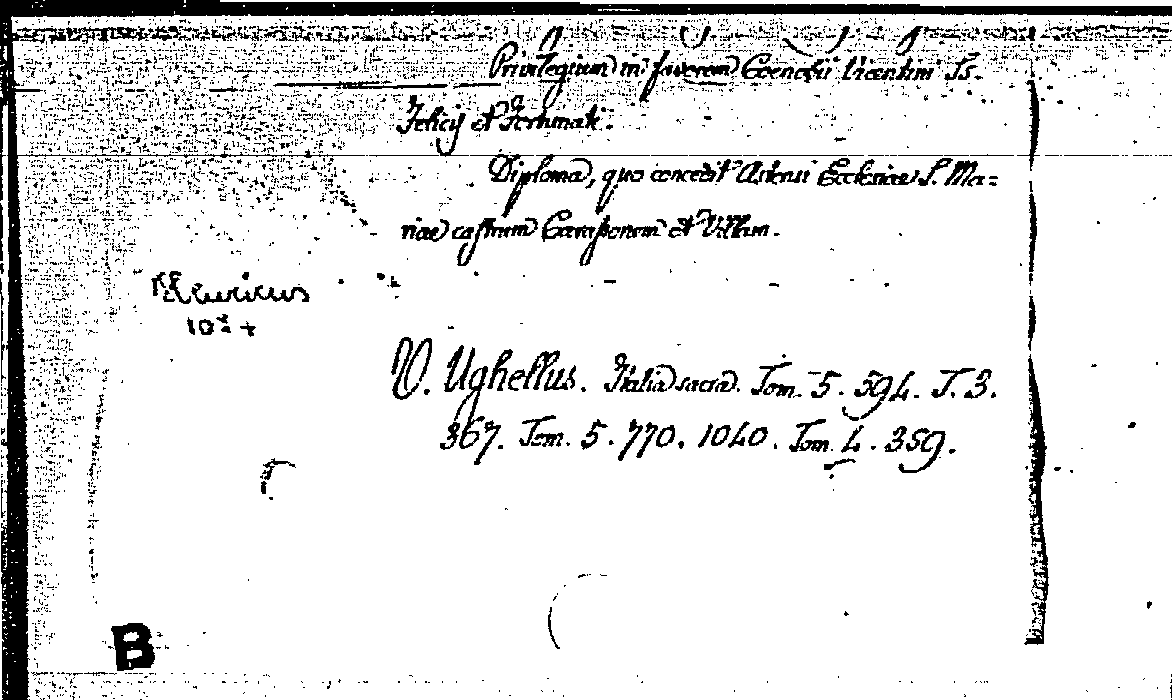 Privilegium in favorem Coenobii Vicentini Ss.
Felicis et Fortunati.
Diploma, quo concedit Astensi Ecclesiae S. Ma=
riae castrum Camporum et Villam.
Henricus
10
V. Ughellus. Italia sacra. Tom. 5. 594. T. 3.
367. Tom. 5. 770. 1040. Tom. 4. 359.
B